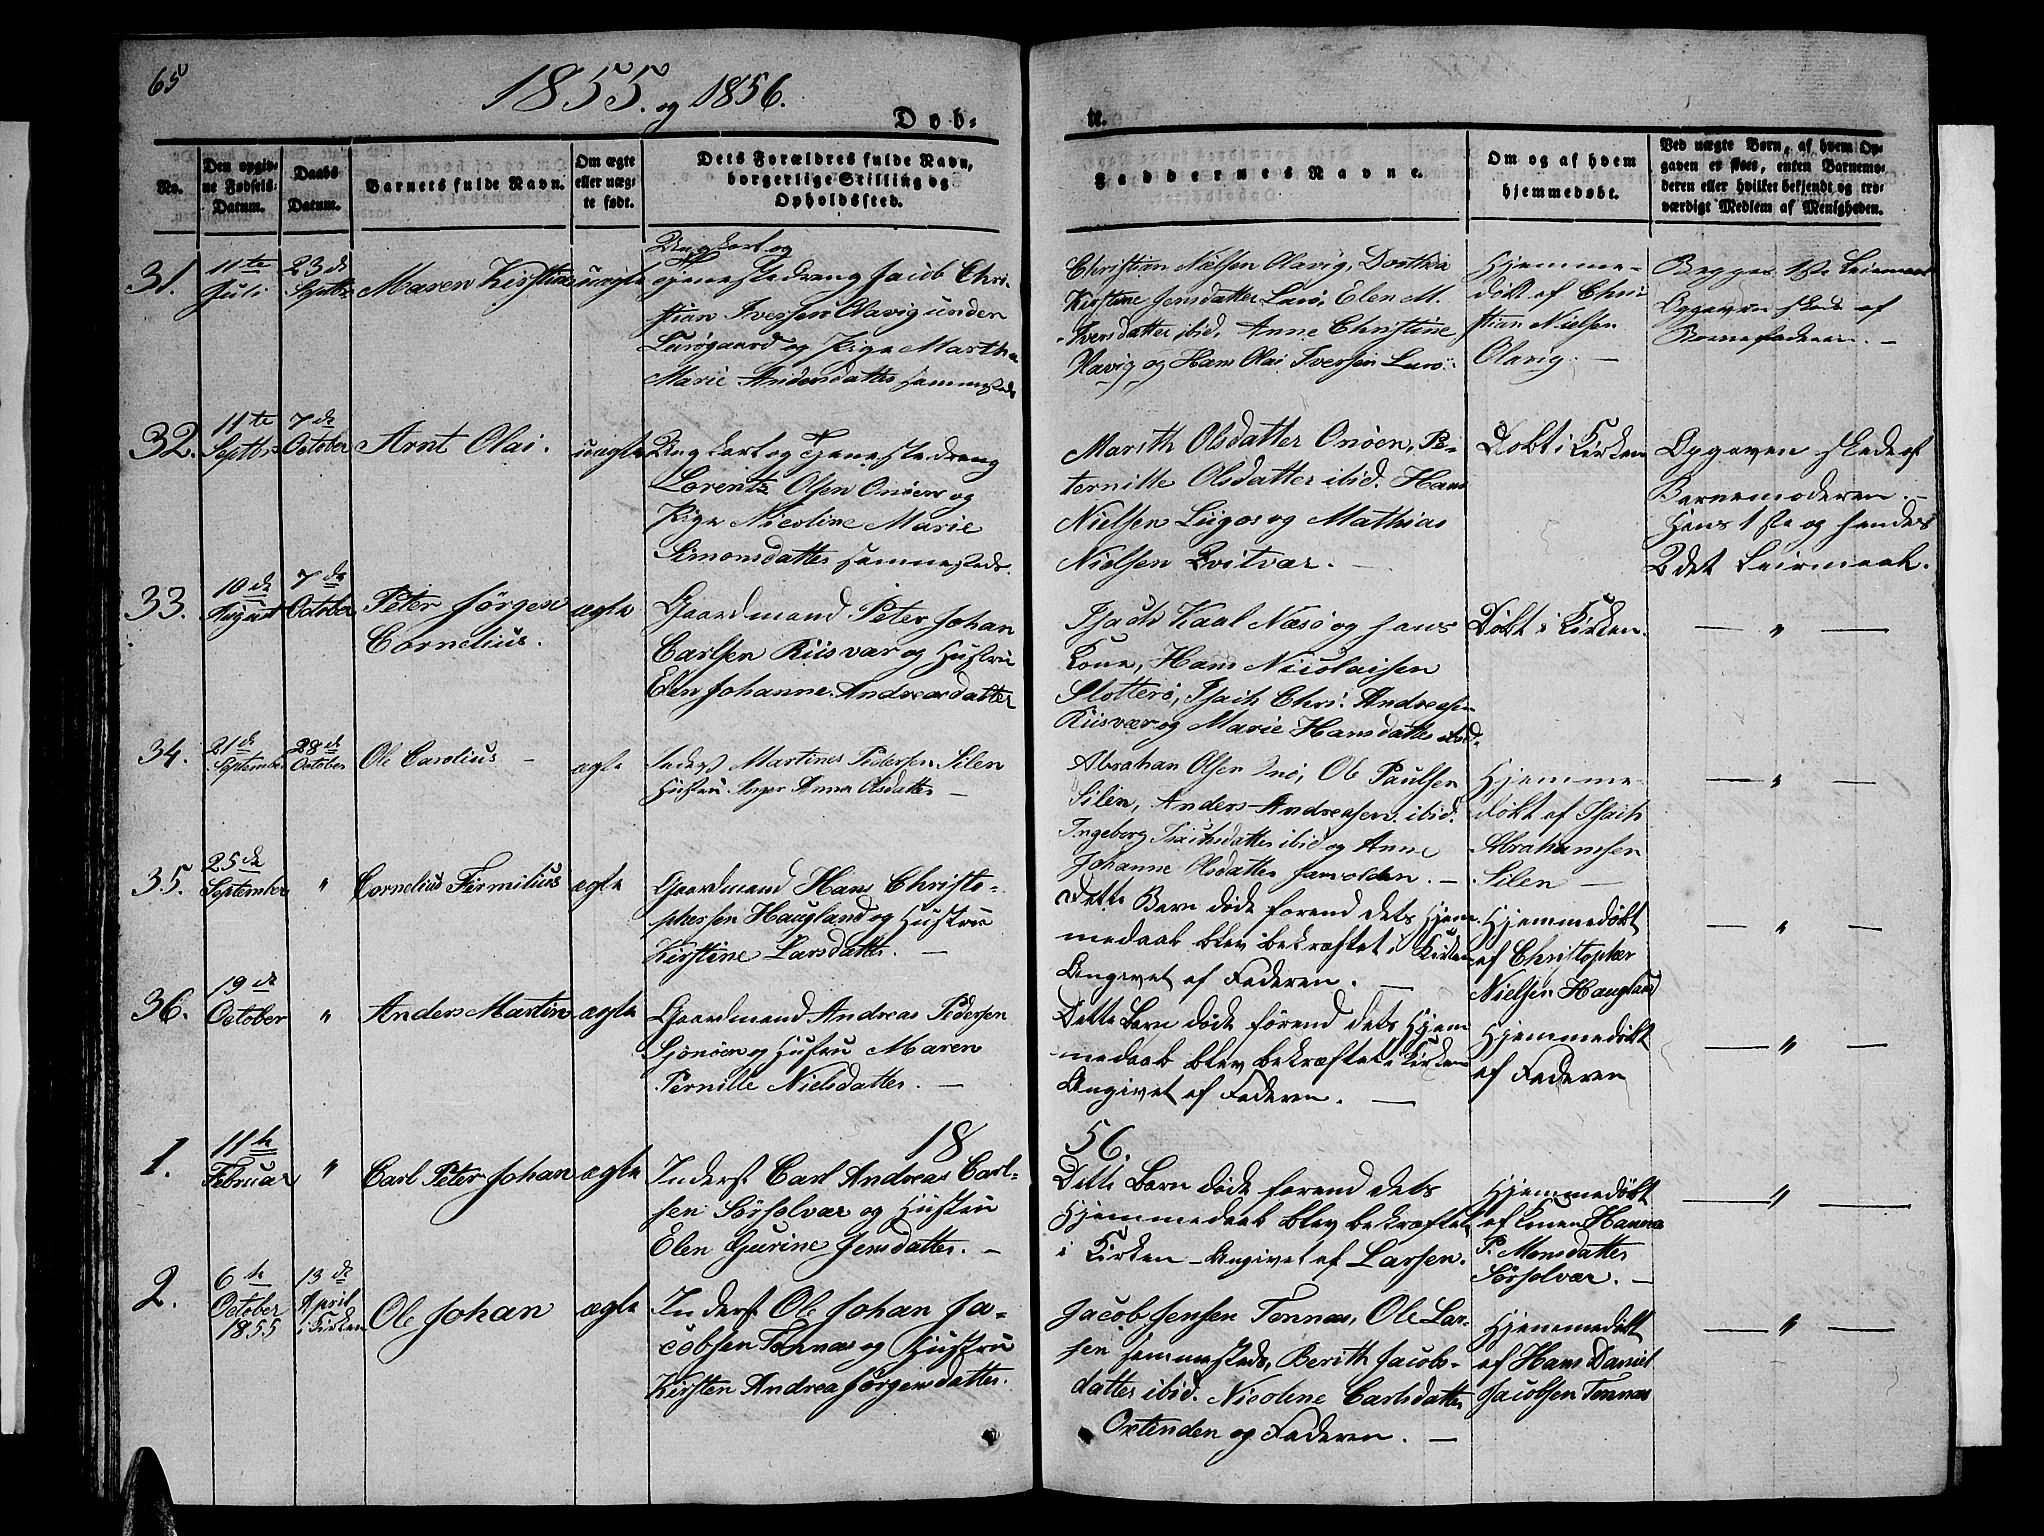 65
1855. og 1856.
Døb-
te.
No.
Den opgiv-
ne Fødsels-
Datum.
Daabs
Datum.
Barnets fulde Navn.
Om ægte
eller uæg-
te født.
Dets Forældres fulde Navn,
borgerlige Stilling og
Opholdssted.
Faddernes Navne.
Om og af hvem
hjemmedøbt.
Ved uægte Børn, af hvem Op-
gaven er skeet, enten Barnemo-
deren eller hvilket bekjendt og tro-
værdigt Medlem af Menigheden.
31.
11te
Juli
23de
Septbr
Maren Kirstine
uægte
Ungkarl og
Tjenestedreng Jacob Chri-
stian Iversen Olavig under
Lurøgaard og Pige Martha
Marie Andersdatter sammesteds
Christian Nielsen Olavig, Dorthea
Kirstine Jensdatter Lurø, Elen M.
Iversdatter ibid, Anne Christine
Olavig og Hans Olai Iversen Lurø.
Hjemme-
døbt af Chri
stian Nielsen
Olavig. —
Begges 1ste Leiermaal
Opgaven skede af
Barnefaderen. —
32.
11te
Septbr
7de
October
Arnt Olai.
uægte
Ungkarl og Tjenestedreng
Lorentz Olsen Onøen og
Pige Nicoline Marie
Simonsdatter sammesteds.
Marith Olsdatter Onøen, Pe-
ternille Olsdatter ibid. Hans
Nielsen Liigos og Mathias
Nielsen Qvitvær. —
Døbt i Kirken
Opgaven skede af
Barnemoderen. —
Hans 1ste og hendes
2det Leiermaal.
33.
10de
August
7de
October
Peter Jørgen
Cornelius.
ægte
Gaardmand Peter Johan
Carlsen Riisvær og Hustru
Elen Johanne Andreasdatter
Isach Kaal Næsø og hans
Kone, Hans Nicolaisen
Slotterø, Isach Chri. Andreasen
Riisvær og Marie Hansdatter ibid.
Døbt i Kirken.
— " —
34.
21de
September
28de
October
Ole Carolius —
ægte
Inderst Martines Pedersen Silen
Hustru Inger Anna Olsdatter —
Abrahan Olsen Onø, Ole Paulsen
Silen, Anders Andreasen ibid.
Ingeborg Isachsdatter ibid og Anne
Johanne Olsdatter
Hjemme-
døbt af Isach
Abrahamsen
Silen —
— " —
35.
25de
September
"
Cornelius Firmilius
ægte
Gaardmand Hans Christo-
phersen Haugland og Hustru
Kirstine Larsdatter. —
Dette Barn døde forend dets Hjem-
medaab blev bekræftet i Kirken
Angivet af Faderen. —
Hjemmedøbt
af Christopher
Nielsen Haugland
— " —
36.
19de
October
"
Anders Martin
ægte
Gaardmand Andreas Pedersen
Sjonøen og Hustru Maren
Pernille Nielsdatter. —
Dette Barn døde førend dets Hjem
medaab blev bekræftet i Kirken
Angivet af Faderen. —
Hjemmedøbt
af Faderen
— " —
18
56.
1.
11te
Februar
"
Carl Peter Johan
ægte
Inderst Carl Andreas Carl-
sen Sørsolvær og Hustru
Elen Gurine Jensdatter. —
Dette Barn døde forend dets
Hjemmedaab blev bekræftet
i Kirken — Angivet af Larsen.
Hjemmedøbt
af Konen Hanna
P. Monsdatter
Sørsolvær. —
— " —
2.
6te
October
1855
13de
April
i Kirken
Ole Johan
ægte
Inderst Ole Johan Ja-
cobsen Tonnæs og Hustru
Kirsten Andrea Jørgensdatter.
Jacob Jensen Tonnæs, Ole Lar-
sen sammesteds, Berith Jacobs-
datter ibid. Nicoline Carlsdatter
Oxtinden og Faderen. —
Hjemmedøbt
af Hans Daniel
Jacobsen Tonnæs
— " —